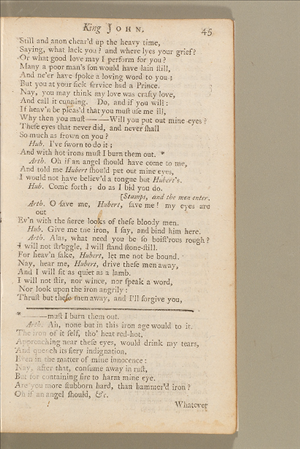 King JOHN. 45
Still and anon chear'd up the heavy time,
Saying, what lack you? and where lyes your grief?
Or what good love may I perform for you?
Many a poor man's son would have lain still,
And ne'er have spoke a loving word to you:
But you at your sick service had a Prince.
Nay, you may think my love was crafty love,
And call it cunning. Do, and if you will:
If heav'n be pleas'd that you must use me ill,
Why then you must——Will you put out mine eyes?
These eyes that never did, and never shall
So much as frown on you?
Hub. I've sworn to do it:
And with hot irons must I burn them out. *
Arth. Oh if an angel should have come to me,
And told me Hubert should put out mine eyes,
I would not have believ'd a tongue but Hubert's.
Hub. Come forth: do as I bid you do.
[Stamps, and the men enter.
Arth. O save me, Hubert, save me! my eyes are
out
Ev'n with the fierce looks of these bloody men.
Hub. Give me the iron, I say, and bind him here.
Arth. Alas, what need you be so boist'rous rough?
I will not struggle, I will stand stone-still.
For heav'n sake, Hubert, let me not be bound.
Nay, hear me, Hubert, drive these men away,
And I will sit as quiet as a lamb.
I will not stir, nor wince, nor speak a word,
Nor look upon the iron angrily:
Thrust but these men away, and I'll forgive you,
* ——must I burn them out.
Arth. Ah, none but in this iron age would do it.
The iron of it self, tho' heat red-hot,
Approaching near these eyes, would drink my tears,
And quench its fiery indignation,
Even in the matter of mine innocence:
Nay, after that, consume away in rust,
But for containing fire to harm mine eye.
Are you more stubborn hard, than hammer'd iron?
Oh if an angel should, &c.
Whatever